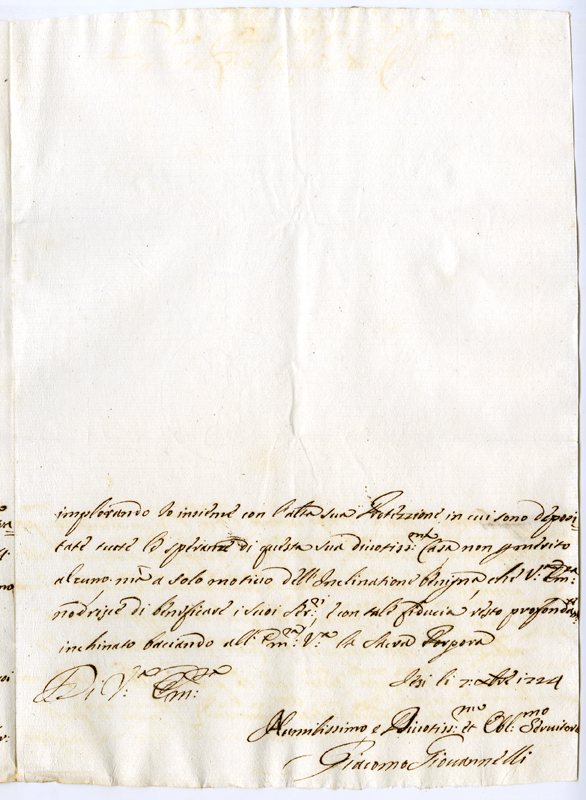 implorando lo insieme con l'alta sua Protezzione, in cui sono deposi=
tate tutte le speranze di questa sua divotiss:ma Casa non p merito
alcuno, mà a solo motivo dell'Inclinatione benigna, che V:ra Em:za
nodrisce di beneficare i suoi Ser:ri, e con tale fiducia resto profonda:te
inchinato baciando all'Em:za V:ra la Sacra Porpora
Di V:ra Em:za
Jesi li 7: 1724
Humilissimo e Divotiss:mo et Obl:mo Servitore
Giacomo Giovannelli